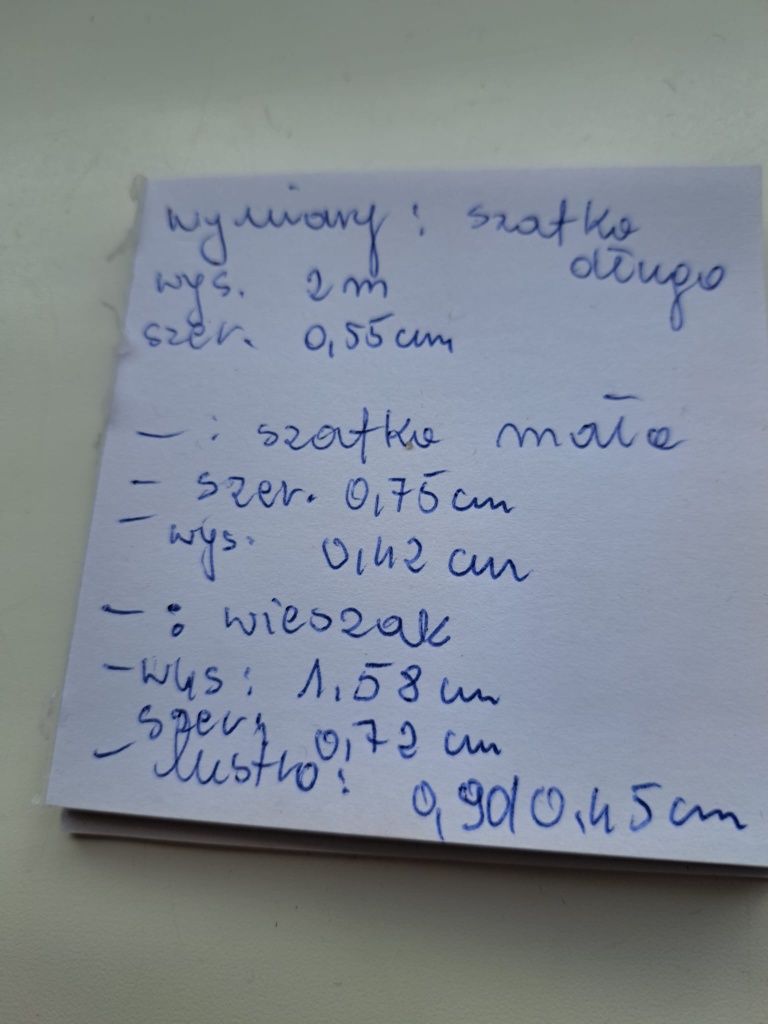 wymiary: szafka
długa
wys. 2 m
szer. 0,55 cm
- : szafka mała
- szer. 0,75 cm
- wys. 0,42 cm
- : wieszak
- wys: 1.58 cm
szer: 0,72 cm
- lustro: 0,90/0.45 cm